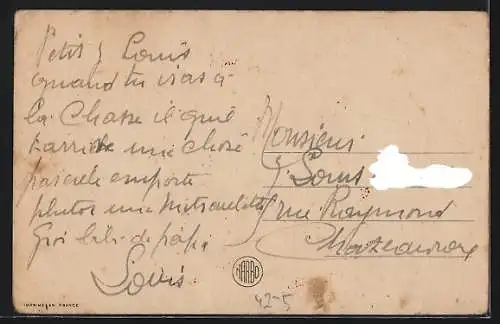 Petit Louis
quand tu iras a
la Chasse il que
t'arrive une chose
pareele emporte
plutot une Mitraillette
Gros bibi de papi
Louis
Monsieur
Louis
rue Raymond
Chateauroux
BARRÉ
42-5